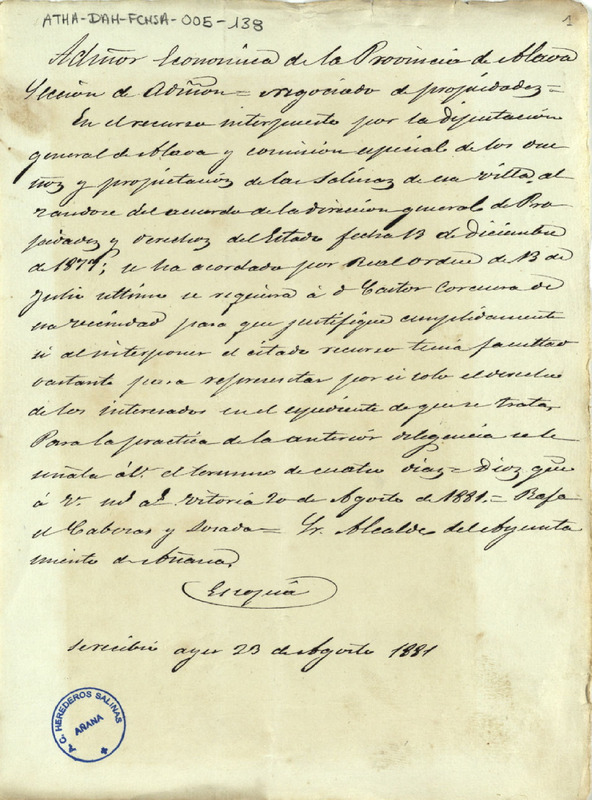 ATHA-DAH-FCHSA-005-138
1
Admor Economica de la Provincia de Alava
Seccion de Admon = negociado de propiedades =
En el recurso interpuesto por la diputacion
general de Alava y comision especial de los due
ños y propietarios de las Salinas de esa villa, al
zandose del acuerdo de la direccion general de Pro
piedades y derechos del Estado fecha 13 de diciembre
de 1877; se ha acordado por Real orden de 13 de
Julio ultimo se requiera á d Castor Corcuera de
esa vecindad para que justifique cumplidamente
si al interponer el citado recurso tenia facultad
vastante para representar por si solo el derecho
de los interesados en el espediente de que se trata,
Para la practica de la anterior diligencia se le
señala á V. el termino de cuatro dias = Dios gue
á V. ms as. Vitoria 20 de Agosto de 1881. = Rafa
el Caberas y = Sr. Alcalde del Ayunta
miento de Añana,
Es copia
se recibió ayer 23 de Agosto 1881
A. C. HEREDEROS SALINAS
AÑANA